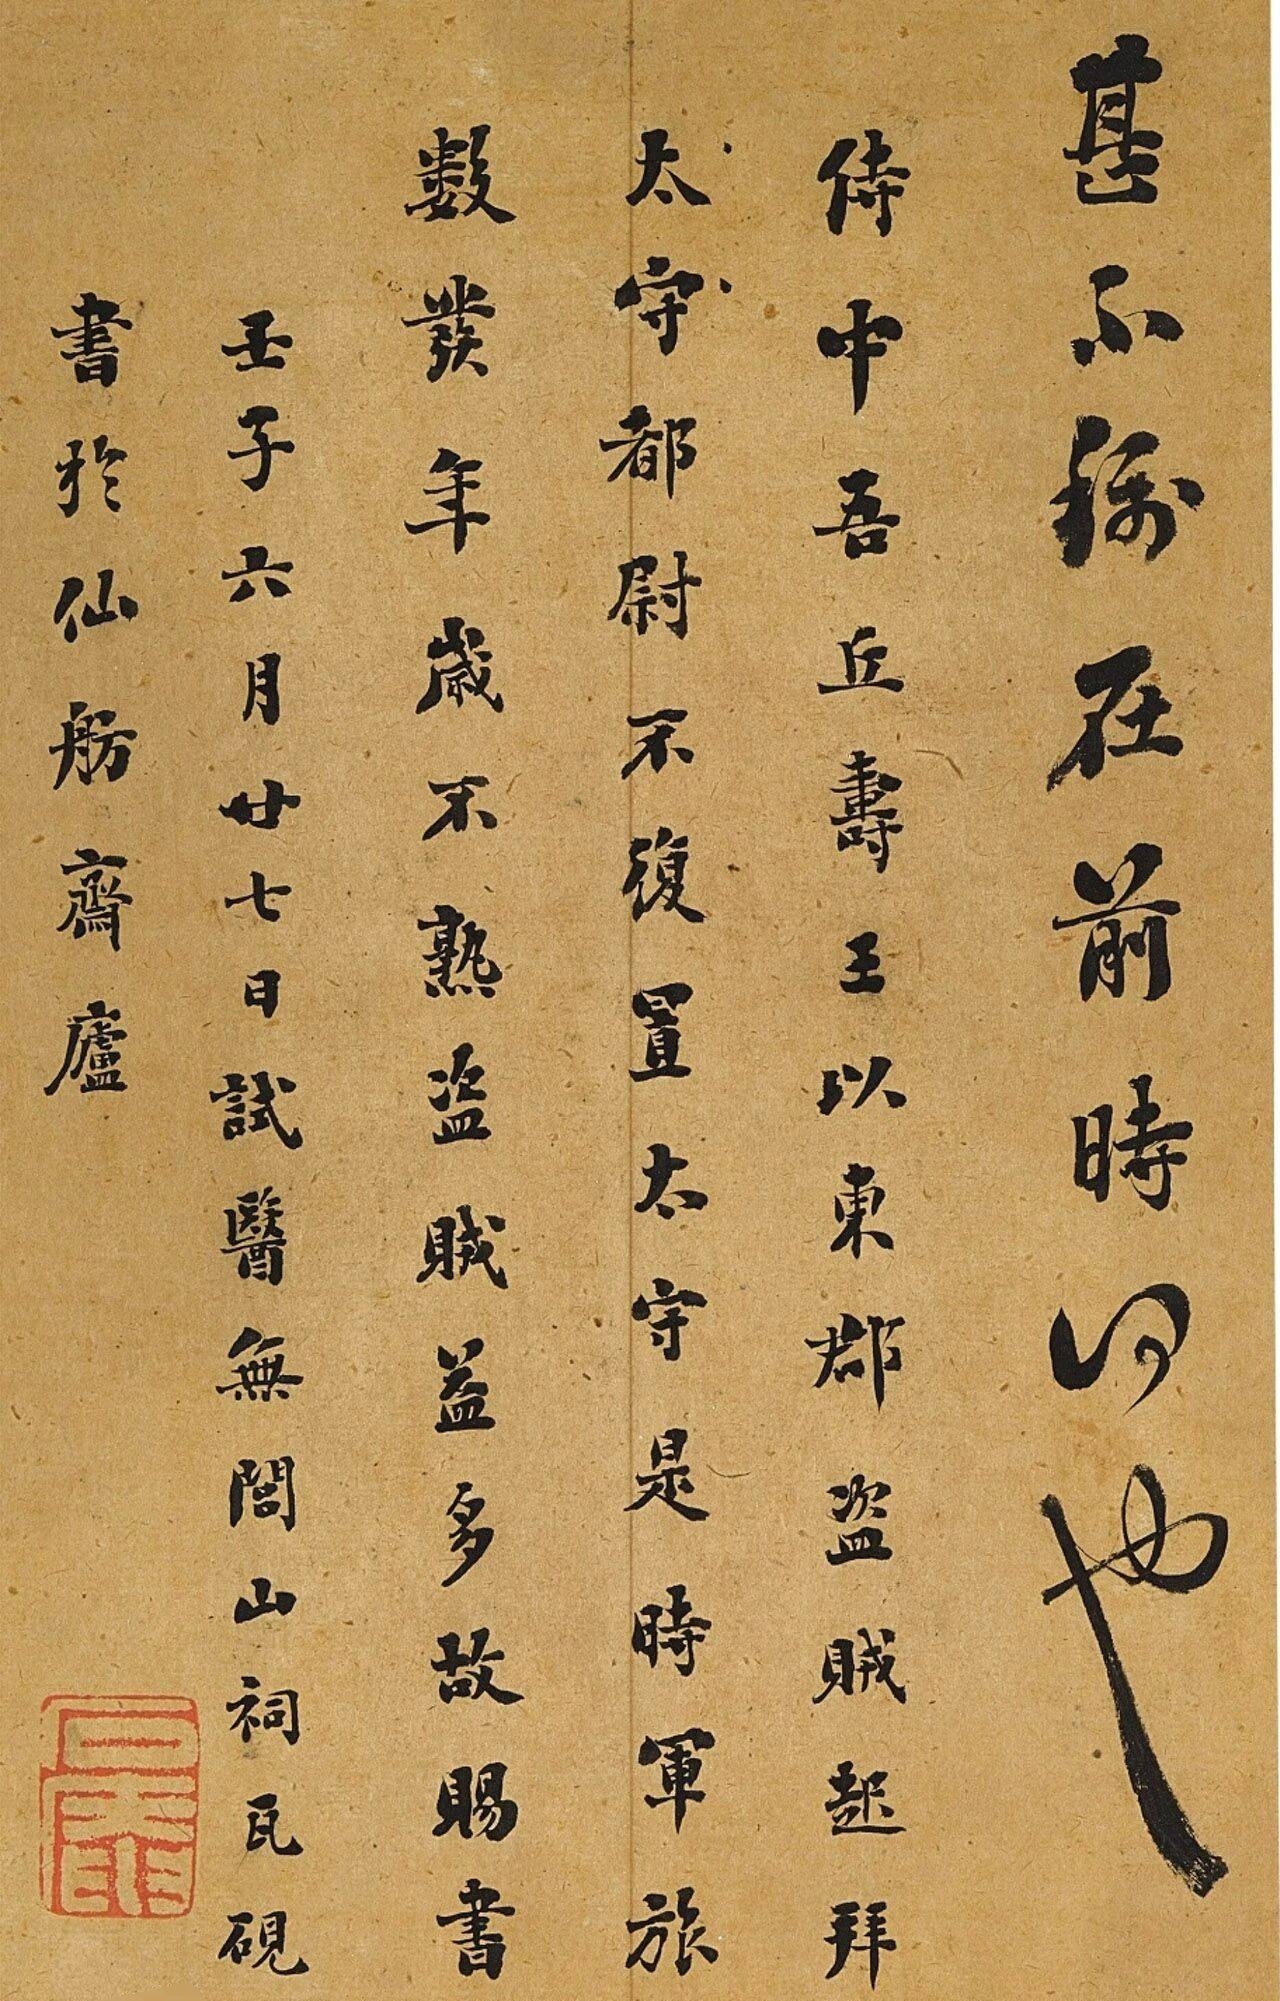 甚不稱在前時何也
侍中吾丘壽王以東郡盗賊起拜
太守都尉不復置太守是時軍旅
數發年歲不熟盗賊益多故賜書
壬子六月廿七日試醫無閭山祠瓦硯
書於仙舫齋廬